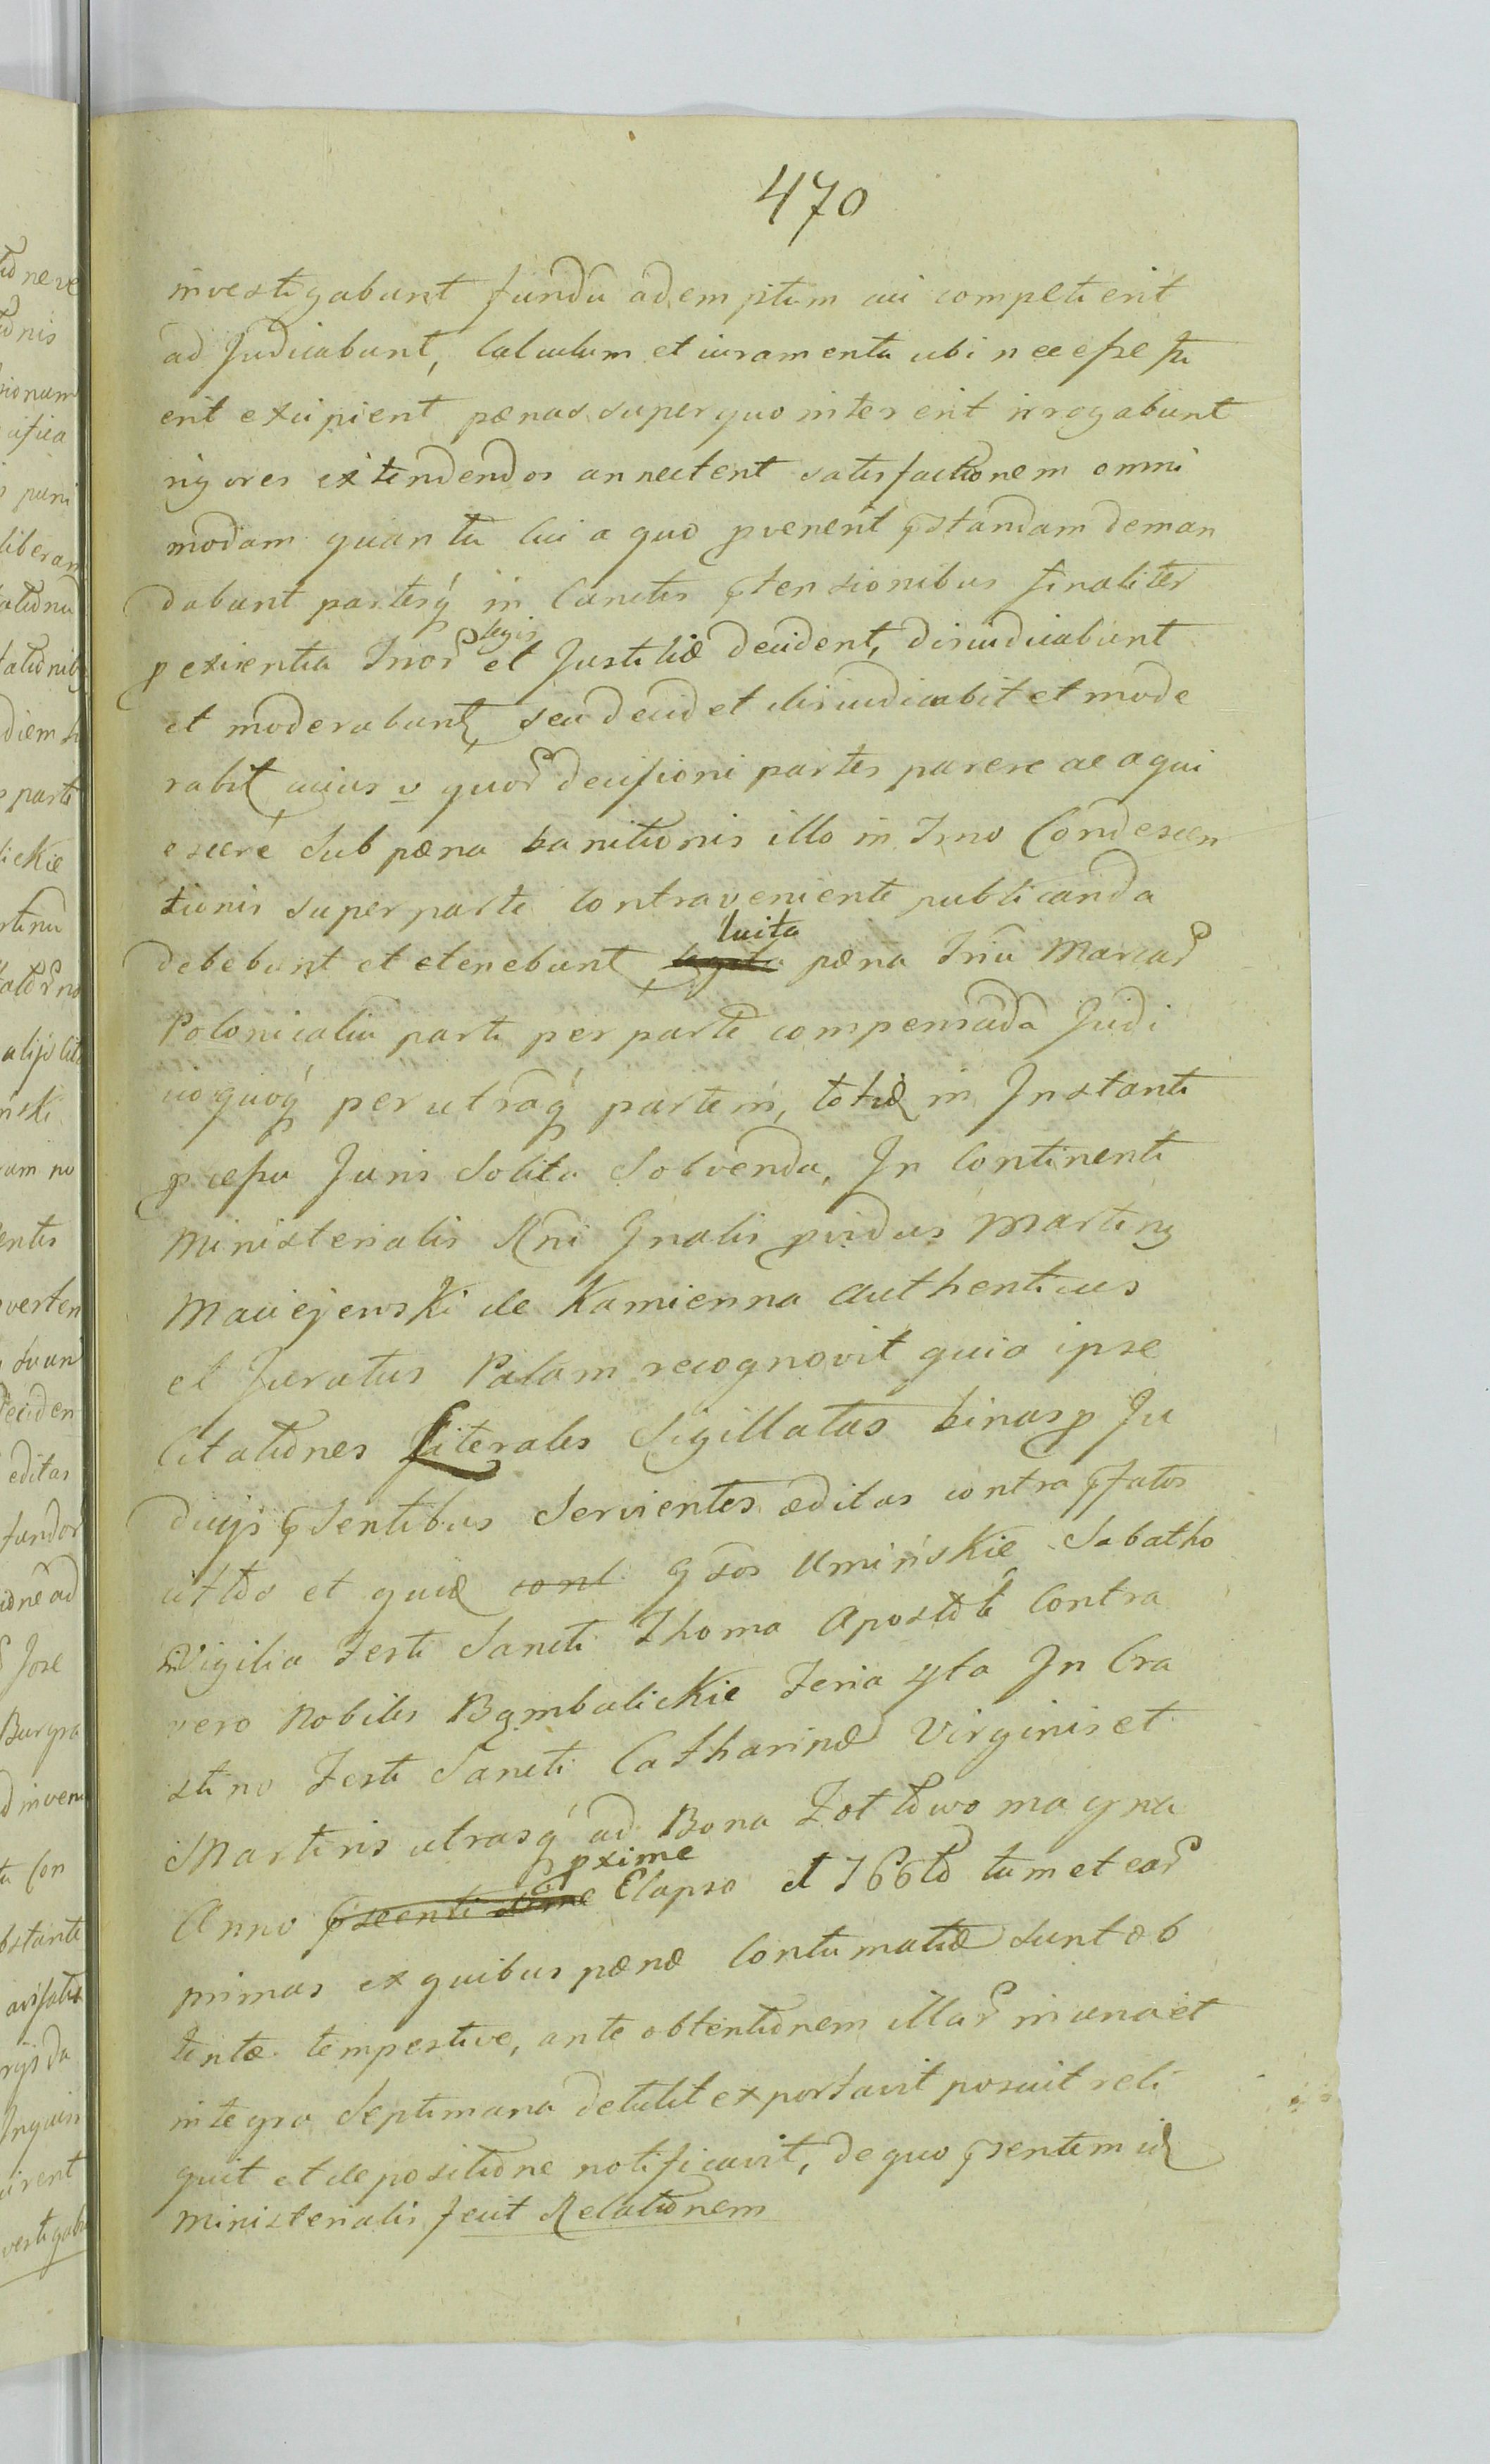 470
investigabunt fundũ ademptum cui competierit
adjudicabunt, Calculum et iuramenta ubi necesse fu
erit excipient pænas super quo inter erit irrogabunt
rigores extendendos annectent satisfactionem omni
modam quantũ Cui a quo pvenerit pstandam deman
dabunt partesq́ in Cunctis ptensionibus finaliter
p exientia Inor legis et Justitiæ decident, diriudicabunt
et moderabunt, seu decidet diriudicabit et mode
rabit, cuius v quor decisioni partes parere ac aqui
escere Sub pæna banitionis illo in Trno Condescen
tionis super parte Contraveniente publicanda
debebunt et etenebunt luita pæna Triũ Marcar
Polonicaliũ parti per parte compensada Judi
cio quoq́ per utraq́ partem, toties in Instanti
pcessu Juris Solita Solvenda, In Continenti
Ministerialis Rni Gnalis pvidus Martinus
Maciejewski de Kamienna authenticus
et Juratus Palam recognovit quia ipse
Citationes Literales Sigillatas binas p Ju
dicijs psentibus Servientes æditas contra pfatos
cittos et quidem cont. Gsos Uminskie Sabatho
in Vigilia Festi Sancti Thoma Apostoli Contra
vero Nobiles Bąmbalickie Feria 4ta In Cra
stino Festi Sancti Catharinæ Virginis et
Martiris utrasq́ ad Bona Żottowo magna
Anno pxime Elapso 1766to tum et ear
primas ex quibus pænæ Contumatiæ sunt ob
tentæ tempestive, ante obtentionem illar in una et
integra Septimana detulit exportavit posuit reli
quit et de positione notificavit, de quo psentem id
Ministerialis fecit Relationem